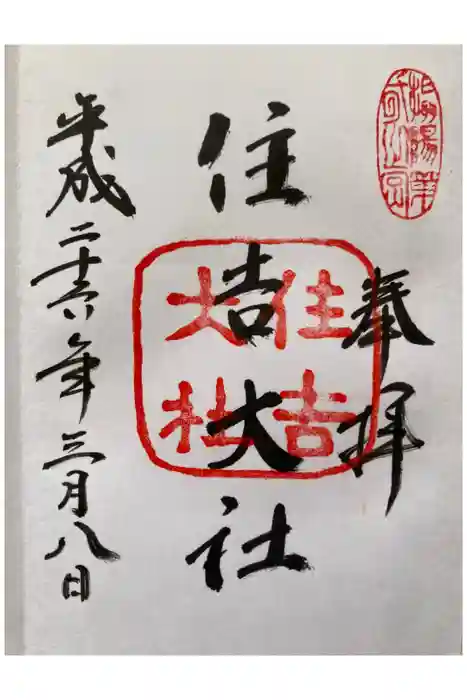 奉拝
住吉大社
住吉
大社
平成二十六年三月八日